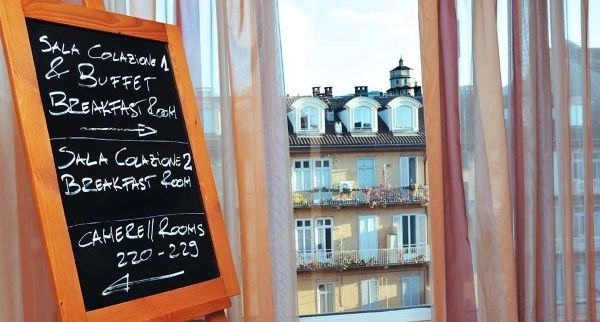 SALA COLAZIONE 1
& BUFFET
BREAKFAST ROOM
SALA COLAZIONE 2
BREAKFAST ROOM
CAMERE // ROOMS
220-229